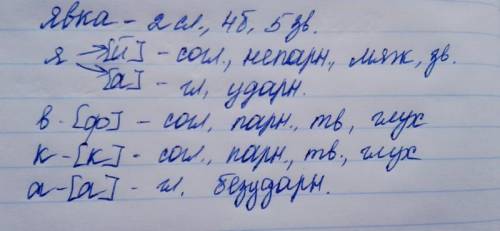 явка - 2 сл., 4б, 5 зв.
я [й] - согл., непарн., мяж, зв.
[а] - гл, ударн.
в - [ф] - согл, парн., тв, глух
к - [к] - согл., парн., тв., глух
а - [а] - гл. безударн.